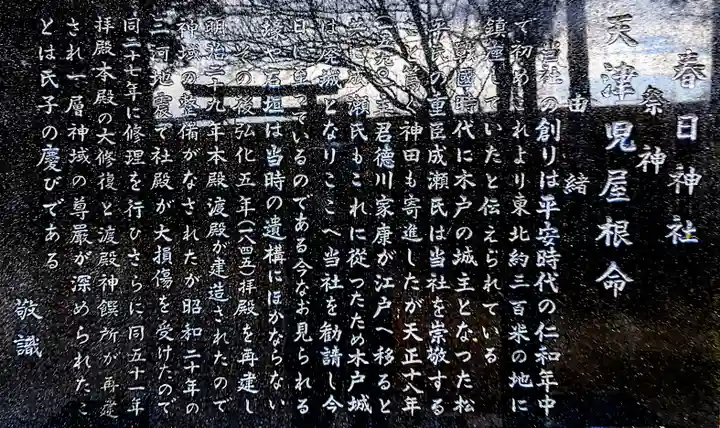 春日神社
祭神
天津児屋根命
由緒
当社の創りは平安時代の仁和年中
で初めこれより東北約三百米の地に
鎮座していたと伝えられている
戦国時代に木戸の城主となつた松
平氏の重臣成瀬氏は当社を崇敬する
こと篤く神田も寄進したが天正十八年
(一五九〇)主君德川家康が江戸へ移ると
共に成瀬氏もこれに従つたため木戸城
は廃城となりここへ当社を勧請し今
日に至っているのである今なお見られる
濠や石垣は当時の遺構にほかならない
その後弘化五年(一八四八)拝殿を再建し
明治二十九年本殿渡殿が建造されたので
神域の整備がなされたが昭和二十年の
三河地震で社殿が大損傷を受けたので
同二十七年に修理を行ひさらに同五十一年
拝殿本殿の大修復と渡殿神饌所が再建
され一層神域の尊厳が深められたこ
とは氏子の慶びである
敬識